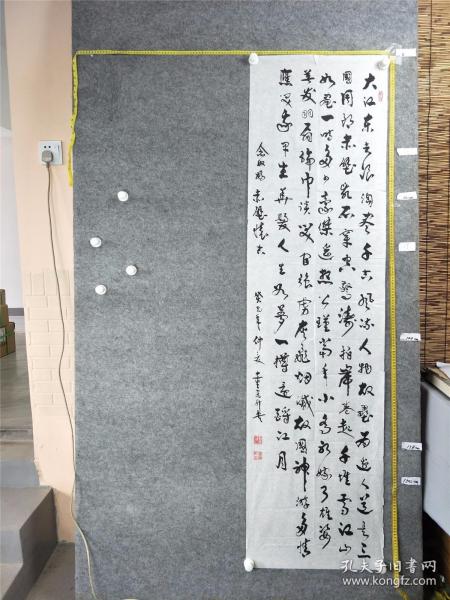 大江东去浪淘尽千古風流人物故壘西边人道是三
國周郎赤壁乱石穿空驚濤拍岸卷起千堆雪江山
如画一时多少豪傑遥想公瑾當年小喬初嫁了雄姿
英发羽扇綸巾谈笑间强虜灰飛烟滅故國神游多情
應笑我早生華髮人生如夢一樽還酹江月
念奴嬌 赤壁懷古 癸巳年仲夏
孔夫子旧书网
www.kongfz.com